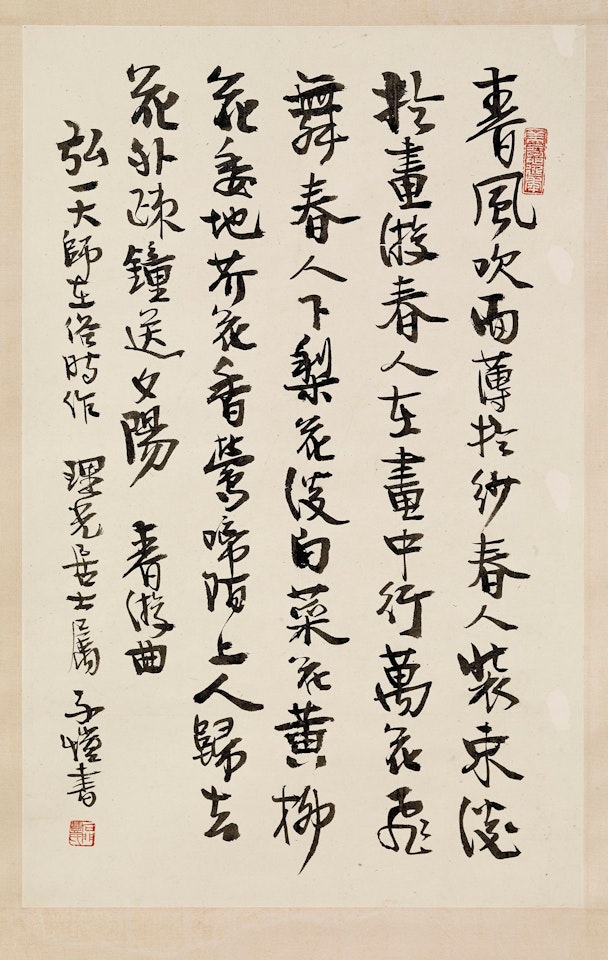 春風吹面薄於紗春人裝束淡
於畫游春人在畫中行萬花飛
舞春人下梨花淡白菜花黃柳
花委地芥花香鶯啼陌上人歸去
花外疎鐘送夕陽 春游曲
弘一大師在俗時作 理光居士屬 子愷書